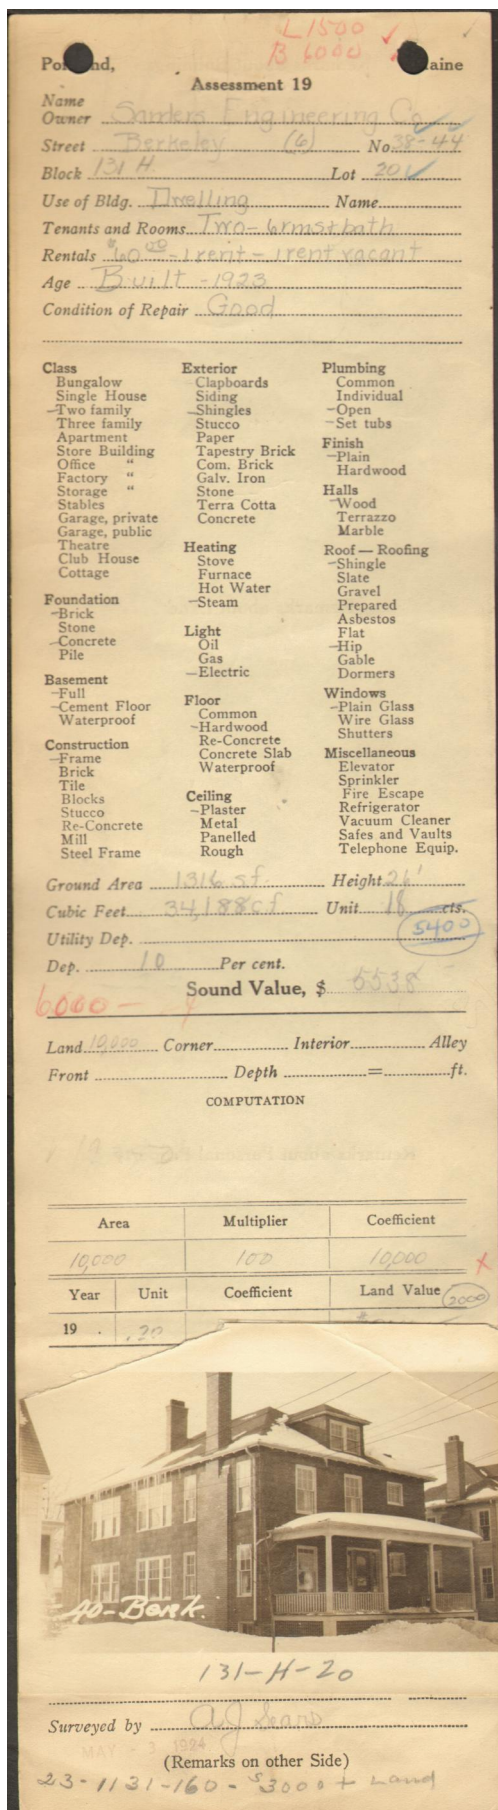 L 1500
B 6000
Portland, Maine
Assessment 19
Name
Owner Sanders Engineering Co
Street Berkeley (6) No. 38-44
Block 131 H Lot 20
Use of Bldg. Dwelling Name
Tenants and Rooms Two-6rms+bath
Rentals $60.00-1 rent-1 rent vacant
Age Built-1923
Condition of Repair Good
Class
Bungalow
Single House
-Two family
Three family
Apartment
Store Building
Office "
Factory "
Storage "
Stables
Garage, private
Garage, public
Theatre
Club House
Cottage
Foundation
-Brick
Stone
-Concrete
Pile
Basement
-Full
-Cement Floor
Waterproof
Construction
-Frame
Brick
Tile
Blocks
Stucco
Re-Concrete
Mill
Steel Frame
Exterior
Clapboards
Siding
-Shingles
Stucco
Paper
Tapestry Brick
Com. Brick
Galv. Iron
Stone
Terra Cotta
Concrete
Heating
Stove
Furnace
Hot Water
-Steam
Light
Oil
Gas
-Electric
Floor
Common
-Hardwood
Re-Concrete
Concrete Slab
Waterproof
Ceiling
-Plaster
Metal
Panelled
Rough
Plumbing
Common
Individual
-Open
-Set tubs
Finish
-Plain
Hardwood
Halls
-Wood
Terrazzo
Marble
Roof — Roofing
-Shingle
Slate
Gravel
Prepared
Asbestos
Flat
-Hip
Gable
Dormers
Windows
-Plain Glass
Wire Glass
Shutters
Miscellaneous
Elevator
Sprinkler
Fire Escape
Refrigerator
Vacuum Cleaner
Safes and Vaults
Telephone Equip.
Ground Area 1316 sf. Height 26'
Cubic Feet 34,188 cf Unit 18 cts.
5400
Utility Dep.
Dep. 10 Per cent.
Sound Value, $ 5538
6000-
Land 10,000 Corner Interior Alley
Front Depth = ft.
COMPUTATION
Area Multiplier Coefficient
10,000 100 10,000
Year Unit Coefficient Land Value 2000
19 . .20
40-Berk.
131-H-20
Surveyed by A J Sears
MAY 3 1924
(Remarks on other Side)
23-1131-160-$3000 + Land